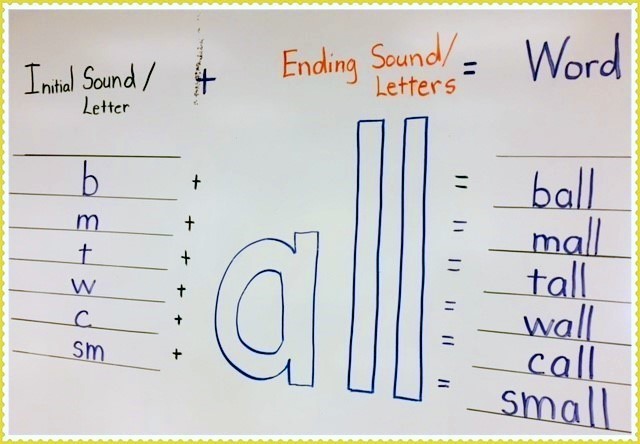 Initial Sound/ + Ending Sound/ = Word
Letter Letters
b + = ball
m + = mall
t + all = tall
w + = wall
c + = call
sm + = small